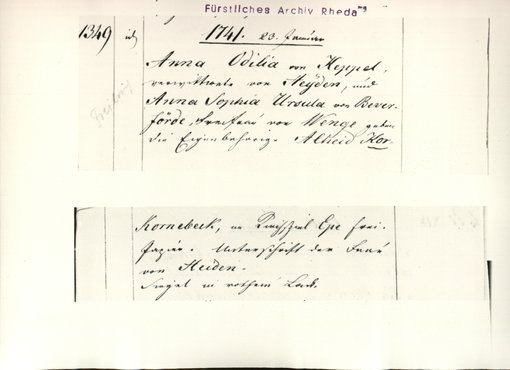 Fürstliches Archiv Rheda
1349
1741. 23. Januar
Anna Odilia von Keppel,
verwittwete von Heyden, und
Anna Sophia Ursula von Bever-
förde, Freifrau von Wenge geben
die Eigenbehörige Alheid Kor-
Freibrief
Kornebeck, im Kirchspiel Epe frei.
Papier. Unterschrift der Frau
von Heiden.
Siegel in rothem Lack.